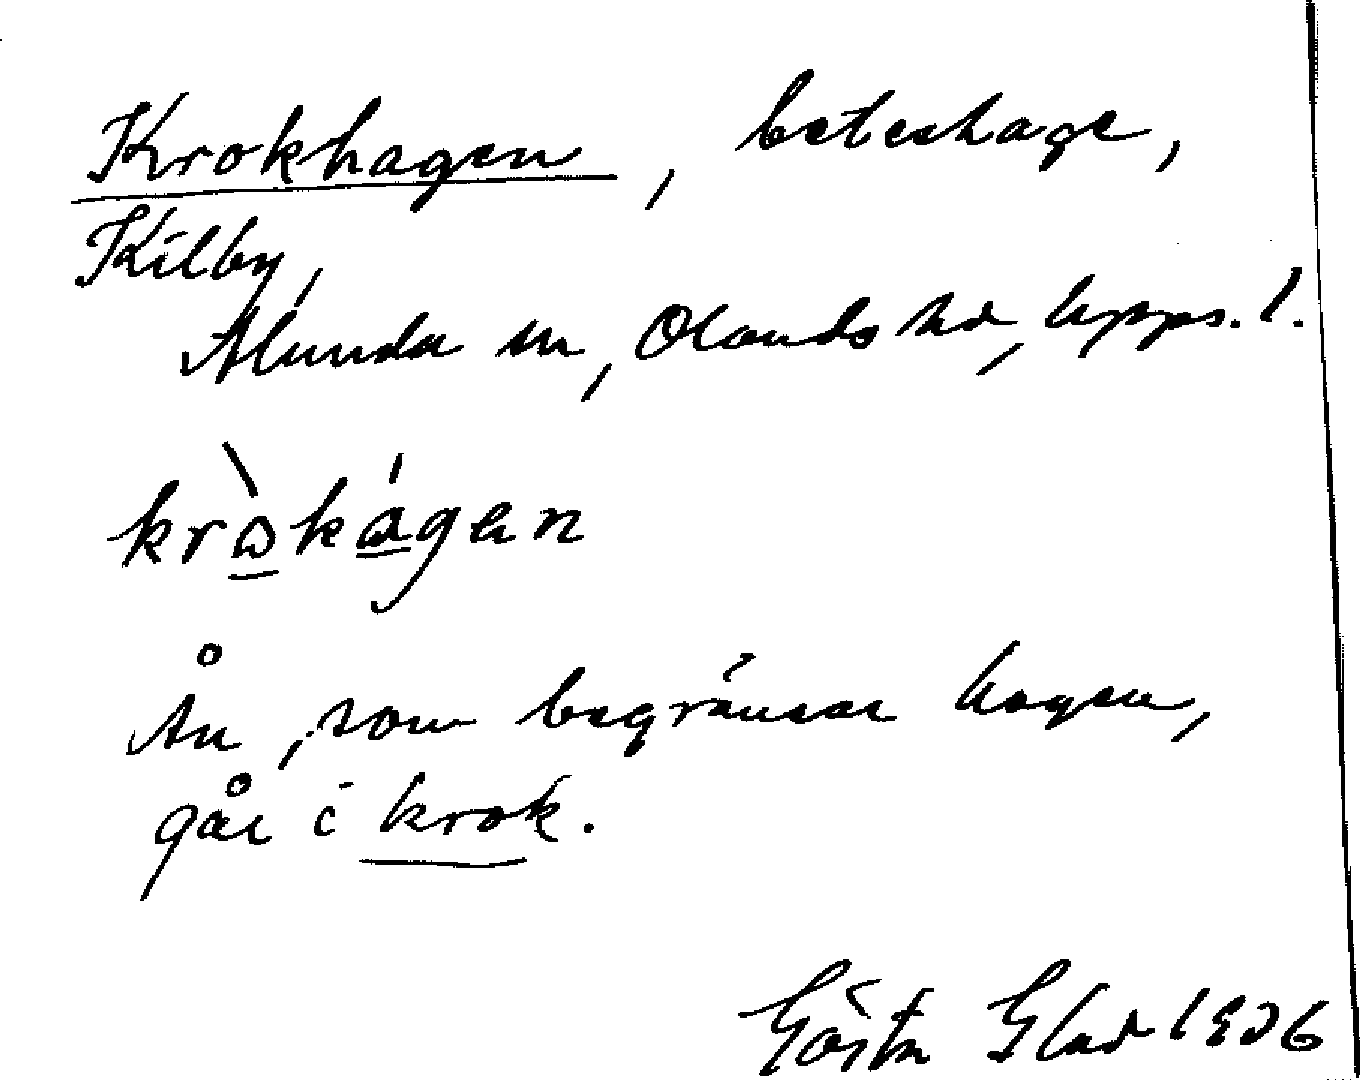 Krokhagen, beteshage,
Kilby,
Alunda sn, Olands hd, Upps. l.
krɷ̀kágen
Ån, som begränsar hagen,
går i krok.
Gösta Glad 1936